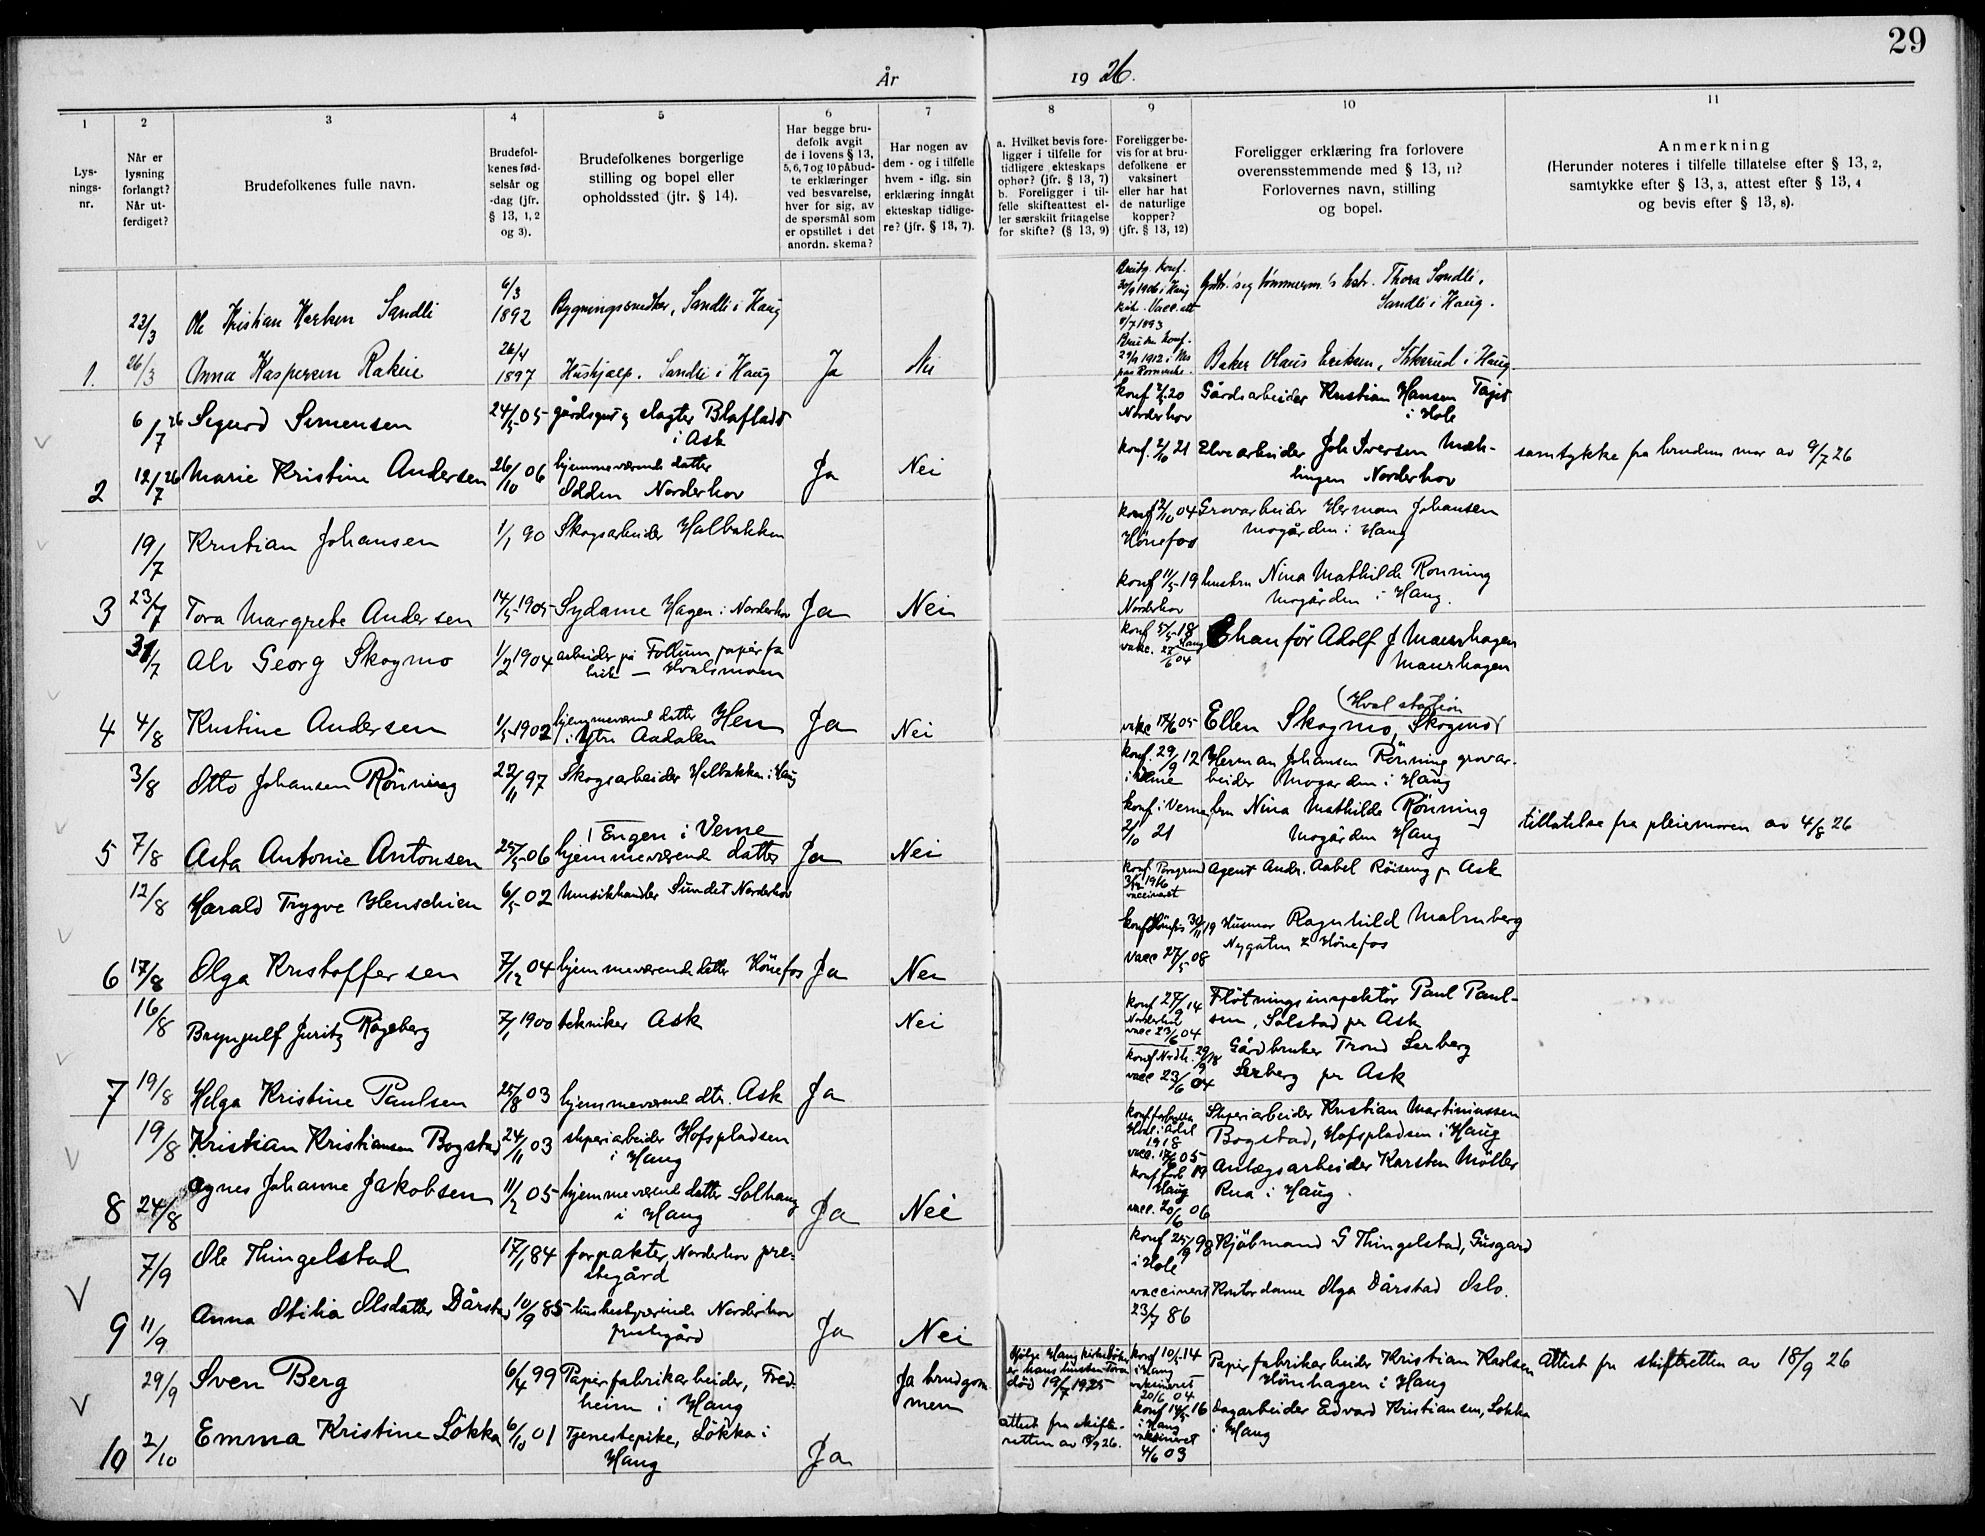 29
År 1926.
1 2 3 4 5 6 7 8 9 10 11
Lys-
nings-
nr.
Når er
lysning
forlangt?
Når ut-
ferdiget?
Brudefolkenes fulle navn.
Brudefol-
kenes fød-
selsår og
-dag (jfr.
§ 13, 1, 2
og 3).
Brudefolkenes borgerlige
stilling og bopel eller
opholdssted (jfr. § 14).
Har begge bru-
defolk avgit
de i lovens § 13,
5, 6, 7 og 10 påbud-
te erklæringer
ved besvarelse,
hver for sig, av
de spørsmål som
er opstillet i det
anordn. skema?
Har nogen av
dem - og i tilfelle
hvem - iflg. sin
erklæring inngåt
ekteskap tidlige-
re? (jfr. § 13, 7).
a. Hvilket bevis fore-
ligger i tilfelle for
tidligere ekteskaps
ophør? (jfr. § 13, 7)
b. Foreligger i til-
felle skifteattest el-
ler særskilt fritagelse
for skifte? (§ 13, 9)
Foreligger be-
vis for at bru-
defolkene er
vaksinert
eller har hat
de naturlige
kopper?
(jfr. § 13, 12)
Foreligger erklæring fra forlovere
overensstemmende med § 13, 11?
Forlovernes navn, stilling
og bopel.
Anmerkning
(Herunder noteres i tilfelle tillatelse efter § 13, 2,
samtykke efter § 13, 3, attest efter § 13, 4
og bevis efter § 13, 8).
22/3 Ole Kristian Sandli 6/3 1892 Bygningssnedker, Sandli i Haug Thora Sandli,
Sandli i Haug.
1. 26/3 Anna Kaspersen 26/4 1897 Hushjælp. Sandli i Haug Ja Nei Baker Olaus Eriksen, i Haug.
6/7 26 Sigurd Simensen 24/5 05 gårdsgut og slagter
i Ask konf 20
Norderhov Gårdsarbeider Kristian Hansen
i Hole
2 12/7 26 Marie Kristine Andersen 26/10 06 hjemmeværende datter
Odden Norderhov Ja Nei konf. 2/10 21 Elvearbeider Joh Iversen Mæh-
lingen Norderhov samtykke fra brudens mor av 9/7 26
19/7 Kristian Johansen 1/1 90 Skogsarbeider Halbakken konf 2/10 04
Hönefos Grovarbeider Herman Johansen
Mogården i Haug
3 23/7 Tora Margrete Andersen 14/5 1905 Sydame Hagen i Norderhov Ja Nei konf 11/5 19
Norderhov hustru Nina Mathilde Rönning
Mogården i Haug.
31/7 Alv Georg Skogmo 1/2 1904 arbeider på Follum papirfa
brik — Hvalsmoen konf 5/5 18 Haug
vakc. 27/6 04 Chauför Adolf J Maurhagen
Maurhagen
4 4/8 Kristine Andersen 1/5 1902 hjemmeværend datter Hen
i Ytre Aadalen Ja Nei vakc 17/6 05 Ellen Skogmo, Skogmo
(Hval station
3/8 Otto Johansen Rönning 22/11 97 Skogsarbeider Halbakken i Haug konf. 29/9 12
Herman Johansen Rönning grovar-
beider Mogården i Haug
5 7/8 Asta Antonie Antonsen 25/5 06 Engen i Verne
hjemmeværende datter Ja Nei konf. i Verne
2/10 21 fru Nina Mathilde Rönning
Mogården Haug tillatelse fra pleiemoren av 4/8 26
12/8 Harald Trygve Henschien 6/5 02 Musikhandler Sundet Norderhov konf Porsgrund
1916
vaccineret Agent Andr. Aabel Röiseng pr Ask
6 17/8 Olga Kristoffersen 7/12 04 hjemmeværende datter Hönefos Ja Nei konf Hönefos 30/11 19
vacc 27/5 08 Husmor Ragnhild Malmberg
Nygaten 2 Hönefos
16/8 Brynjulf Juritz Rögeberg 7/1 1900 tekniker Ask Nei konf 27/9 14
Norderhov
vacc 23/6 04 Flötningsinspektör Paul Paul-
sen, Solstad pr Ask
7 19/8 Helga Kristine Paulsen 25/8 03 hjemmeværend dtr. Ask Ja konf Nordh. 29/9 18
vacc 23/6 04 Gårdbruker Trond Serberg
Serberg pr Ask
19/8 Kristian Kristiansen Bogstad 24/11 03 sliperiarbeider Hofspladsen
i Haug
1918
vacc. 17/6 05 Sliperiarbeider Kristian Martiniussen
Bogstad, Hofspladsen i Haug
8 24/8 Agnes Johanne Jakobsen 11/2 05 hjemmeværende datter Solhaug
i Haug Ja Nei konf. 19
Haug
vacc. 20/6 06 Anlægsarbeider Karsten Möller
Rua i Haug.
7/9 Ole Thingelstad 17/1 84 forpakter, Norderhov pre-
stegård konf 25/9 98
i Hole Kjöbmand G Thingelstad, Gusgard
9 11/9 Anna Otilia Olsdatter Dårstad 10/9 85 husbestyrerinde Norderhov
prestegård Ja Nei vaccinert
23/7 86 Kontordame Olga Dårstad Oslo.
29/9 Sven Berg 6/4 99 Papirfabrikarbeider, Fred-
heim i Haug Ja brudgom-
men Ifølge Haug kirkebøker
er hans hustru Tora
död 19/7 1925 konf 10/5 14
i Haug
vaksineret
20/6 04 Papirfabrikarbeider Kristian Karlsen
Hönhagen i Haug Attest fra skifteretten av 18/9 26
10 2/10 Emma Kristine Lökka 6/10 01 Tjenestepike, Lökka i
Haug Ja attest fra skifte-
retten av 18/9 26. konf 14/5 16
i Haug
vaksineret
4/6 03 Dagarbeider Edvard Kristiansen, Lökka
i Haug